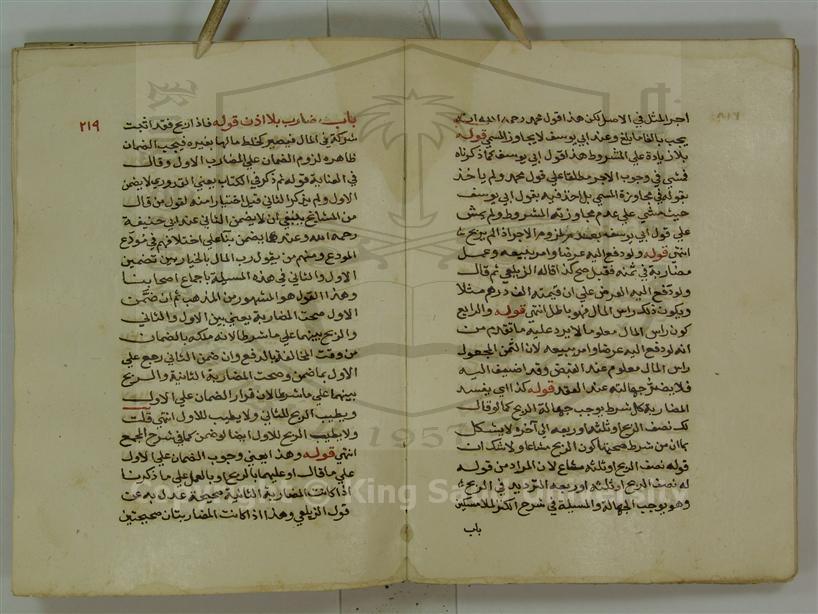 اجر المثل في الاصل لكن هذا قول محمد رحمه الله انه
يجب بالغا ما بلغ وعند ابي يوسف لا يجاوز المسمى قوله
بلا زيادة على المشروط هذا قول ابي يوسف كما ذكرناه
فمشى في وجوب الاجر مطلقا على قول محمد ولم ياخذ
بقوله في مجاوزة المسمى بل اخذ فيه بقول ابي يوسف
حيث مشى على عدم مجاوزته المشروط ولم يمش
على قول ابي يوسف بعدم لزوم الاجر اذا لم يربح
انتهى قوله ولو دفع اليه عرضا وامر ببيعه وعمل
مضاربة في ثمنه فقبل صح كذا قاله الزيلعي ثم قال
ولو دفع اليه العرض على ان قيمته الف درهم مثلا
ويكون ذلك راس المال فهو باطل انتهى قوله والرابع
كون راس المال معلوما لا يرد عليه ما تقدم من
انه لو دفع اليه عرضا وامر ببيعه لان الثمن المجعول
راس المال معلوم عند القبض وقد اضيف اليه
فلا يضر جهالته عند العقد قوله كذا اي يفسد
المضاربة كل شرط يوجب جهالة الربح كما لو قال
لك نصف الربح او ثلثه او ربعه الى آخره لا يشكل
بما ان من شرط صحتها كون الربح مشاعا ولا شك ان
قوله نصف الربح او ثلثه مشاع لان المراد من قوله
له نصف الربح او ثلثه او ربعه الترديد في الربح
وهو يوجب الجهالة والمسئلة في شرح الكنز لملا مسكين
باب
٢١٩
باب مضارب بلا اذن قوله فاذا ربح فقد اثبت
شركة في المال فيصير كخلط مالها بغيره فيجب الضمان
ظاهره لزوم الضمان على المضارب الاول وقال
في العناية قوله ثم ذكر في الكتاب يعني القدوري لا يضمن
الاول ولم يذكر الثاني قيل اختيار امنه لقول من قال
من المشايخ ينبغي ان لا يضمن الثاني عند ابي حنيفة
رحمه الله وعندهما يضمن بناء على اختلافهم في مودع
المودع ومنهم من يقول رب المال بالخيار بين تضمين
الاول والثاني في هذه المسيلة باجماع اصحابنا
وهذا القول هو المشهور من المذهب ثم ان ضمن
الاول صحت المضاربة يعني بين الاول والثاني
والربح بينهما على ما شرطا لانه ملكه بالضمان
من وقت المخالفة بالدفع وان ضمن الثاني رجع على
الاول بما ضمن وصحت المضاربة الثانية والربح
بينهما على ما شرطا لان قرار الضمان على الاول
ويطيب الربح للثاني ولا يطيب للاول انتهى قلت
ولا يطيب الربح للاول ايضا لو ضمن كما في شرح المجمع
انتهى قوله وهذا يعني وجوب الضمان على الاول
على ما قال او عليهما بالربح او بالعمل على ما ذكرنا
اذا كانت المضاربة الثانية صحيحة عدل به عن
قول الزيلعي وهذا اذا كانت المضاربتان صحيحتين